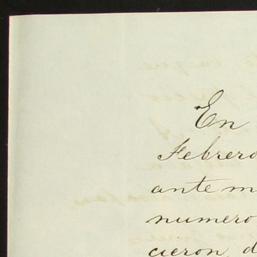 En
Febrero
ante m
numero
cieron d